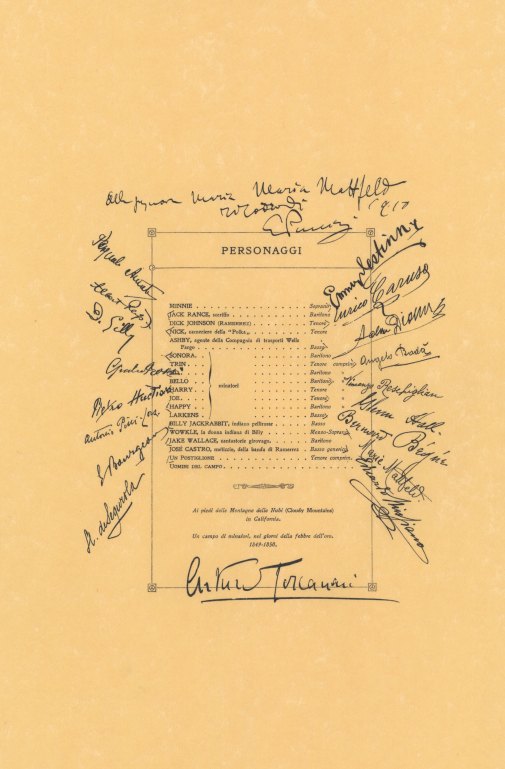 Maria Maria Mattfeld
ricordo di
1910
G. Puccini
PERSONAGGI
MINNIE Soprano
JACK RANCE, sceriffo Baritono
DICK JOHNSON (RAMERREZ) Tenore
NICK, cameriere della "Polka" Tenore
ASHBY, agente della Compagnia di trasporti Wells
Fargo Basso
SONORA Baritono
TRIN Tenore
SID Baritono
BELLO Baritono
HARRY Tenore
JOE Tenore
HAPPY Baritono
LARKENS Basso
minatori
BILLY JACKRABBIT, indiano pellirosse Basso
WOWKLE, la donna indiana di Billy Mezzo-Soprano
JAKE WALLACE, cantastorie girovago Baritono
JOSÉ CASTRO, meticcio, della banda di Ramerrez Basso
UN POSTIGLIONE Tenore
UOMINI DEL CAMPO.
Ai piedi delle Montagne delle Nubi (Cloudy Mountains)
in California.
Un campo di minatori, nei giorni della febbre dell'oro.
1849-1850.
Emmy Destinn
Enrico Caruso
Adamo Didur
Angelo Badà
Vincenzo Reschiglian
Glenn Hall
Bernard Bégué
Marie Mattfeld
D. Gilly
Giulio Rossi
Antonio Pini-Corsi
G. Bourgeois
A. de Segurola
Arturo Toscanini